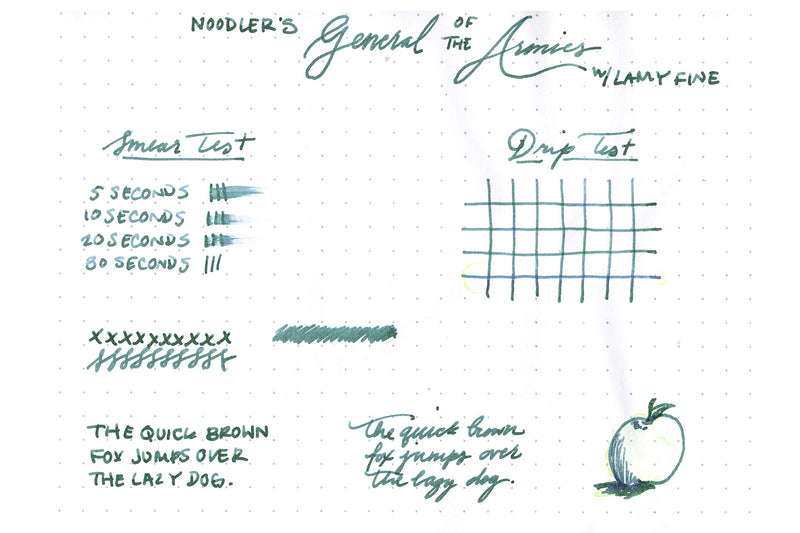 NOODLER'S General OF THE Armies
w/ LAMY FINE
Smear Test
5 SECONDS
10 SECONDS
20 SECONDS
30 SECONDS
Drip Test
xxxxxxxxxx
THE QUICK BROWN
FOX JUMPS OVER
THE LAZY DOG.
the quick brown
fox jumps over
the lazy dog.